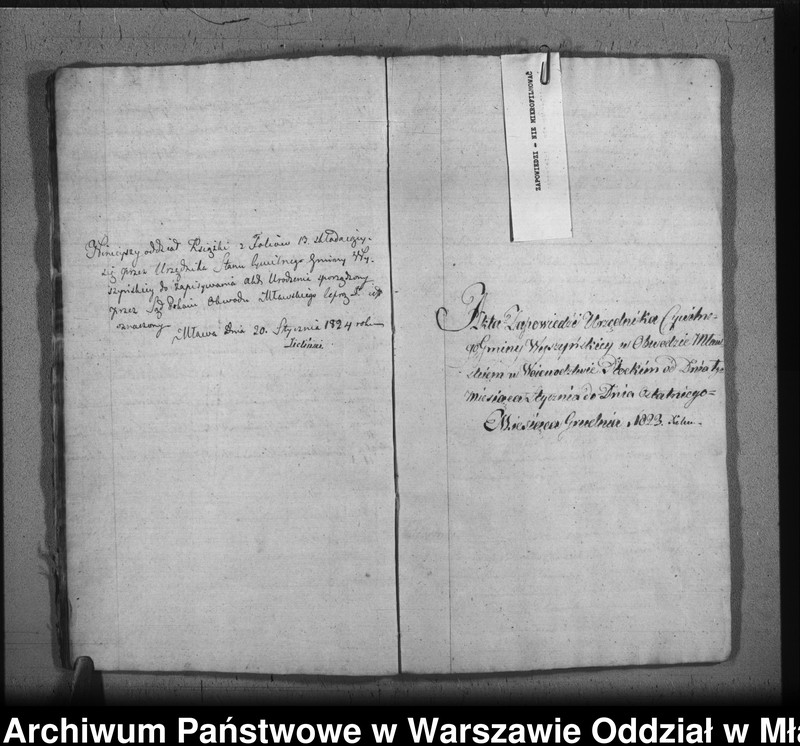 Ninieyszy oddział Książki z Foliów 13. składaiący
się przez Urzędnika Stanu Cywilnego Gminy Wy-
szyńskiey do Zapisywania akt Urodzenia sporządzony
przez Sąd Pokoiu Obwodu Mławskiego
oznaczony
Mława Dnia 20. Stycznia 1824 roku
ZAPOWIEDZI - NIE MIKROFILMOWAĆ
Akta Zapowiedzi Urzędnika Cywilne-
go Gminy Wyszyńskiey w Obwodzie Mław
skiem w Woiewodztwie Płockim od Dnia
Miesiąca Stycznia do Dnia Ostatniego
Miesiąca Grudnia 1823. Roku.
Archiwum Państwowe w Warszawie Oddział w Mła